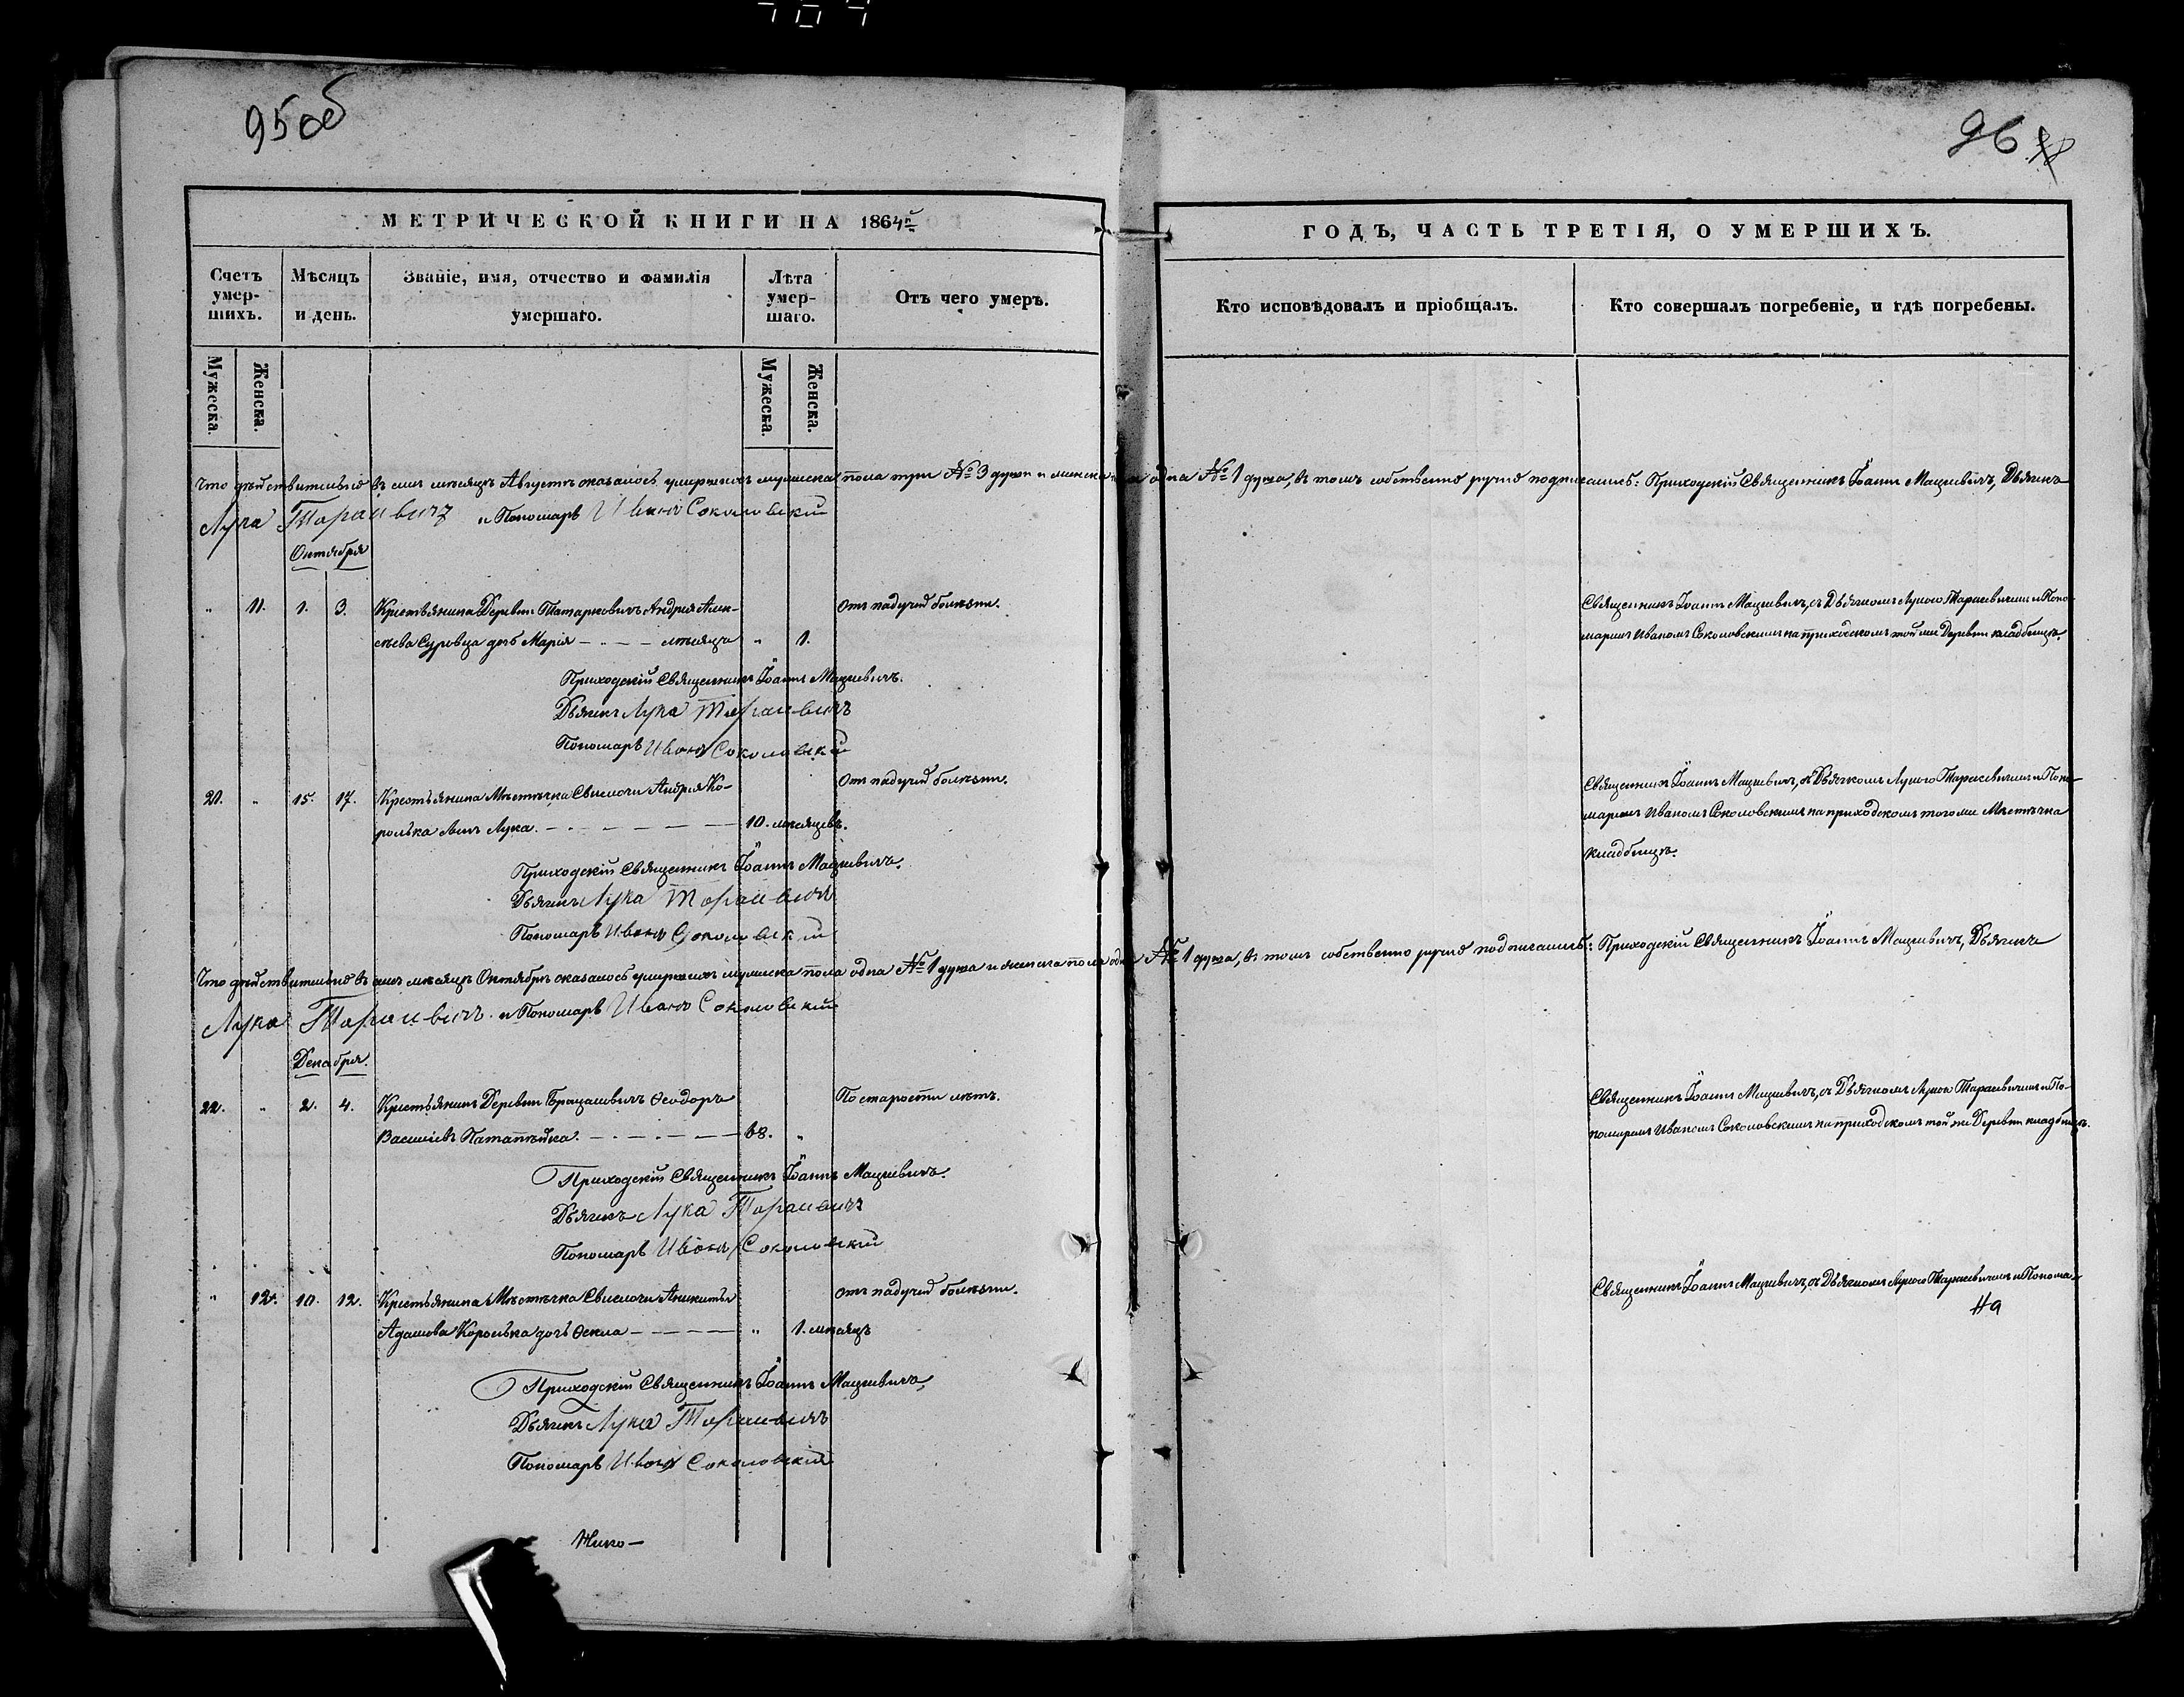 95об
96
МЕТРИЧЕСКОЙ КНИГИ НА 1864й
ГОДЪ, ЧАСТЬ ТРЕТІЯ, О УМЕРШИХЪ.
Счетъ умер-шихъ.
Мѣсяцъ и день.
Званіе, имя, отчество и фамилія умершаго.
Лѣта умер-шаго.
Отъ чего умеръ.
Кто исповѣдовалъ и пріобщалъ.
Кто совершалъ погребеніе, и гдѣ погребены.
Мужеска.
Женска.
Мужеска.
Женска.
Что дѣйствительно въ семъ мѣсяцѣ Августѣ оказалось умершихъ мужеска пола три № 3 души и женска одна № 1 душа, въ томъ собственно ручно подписались: Приходскій Священникъ Іоаннъ Мацкевичъ, Дьячекъ
Лука Тарасевичъ и Пономарь Иванъ Соколовскій
Октября
" 11. 1. 3. Крестьянина Деревни Татарковичъ Андрея Алек- Отъ падучей болѣзни. Священникъ Іоаннъ Мацкевичъ, съ Дьячкомъ Лукою Тарасевичемъ и Поно-
сѣева Суровца дочь Марія — мѣсяца " 1. маремъ Иваномъ Соколовскимъ на приходскомъ той же Деревни кладбищѣ.
Приходскій Священникъ Іоаннъ Мацкевичъ.
Дьячекъ Лука Тарасевичъ
Пономарь Иванъ Соколовскій
21. " 15. 17. Крестьянина Мѣстечка Свислочи Андрея Ко- Отъ падучей болѣзни. Священникъ Іоаннъ Мацкевичъ, съ Дьячкомъ Лукою Тарасевичемъ и Поно-
ролька сынъ Лука. — 10. мѣсяцевъ. маремъ Иваномъ Соколовскимъ на приходскомъ того же Мѣстечка
кладбищѣ.
Приходскій Священникъ Іоаннъ Мацкевичъ.
Дьячекъ Лука Тарасевичъ
Пономарь Иванъ Соколовскій
Что дѣйствительно въ семъ мѣсяцѣ Октябрѣ оказалось умершихъ мужеска пола одна № 1 душа и женска пола одна № 1 душа, въ томъ собственно ручно подписались: Приходскій Священникъ Іоаннъ Мацкевичъ, Дьячекъ
Лука Тарасевичъ и Пономарь Иванъ Соколовскій
Декабря.
22. " 2. 4. Крестьянинъ Деревни Ѳеодоръ По старости лѣтъ. Священникъ Іоаннъ Мацкевичъ, съ Дьячкомъ Лукою Тарасевичемъ и По-
Васильевъ — 68. " номаремъ Иваномъ Соколовскимъ на приходскомъ той же Деревни кладбищѣ.
Приходскій Священникъ Іоаннъ Мацкевичъ.
Дьячекъ Лука Тарасевичъ
Пономарь Иванъ Соколовскій
" 12. 10. 12. Крестьянина Мѣстечка Свислочи Аникитія Отъ падучей болѣзни. Священникъ Іоаннъ Мацкевичъ, съ Дьячкомъ Лукою Тарасевичемъ и Понома-
Адамова Королька дочь Ѳекла — " 1. мѣсяцъ
Приходскій Священникъ Іоаннъ Мацкевичъ,
Дьячекъ Лука Тарасевичъ
Пономарь Иванъ Соколовскій